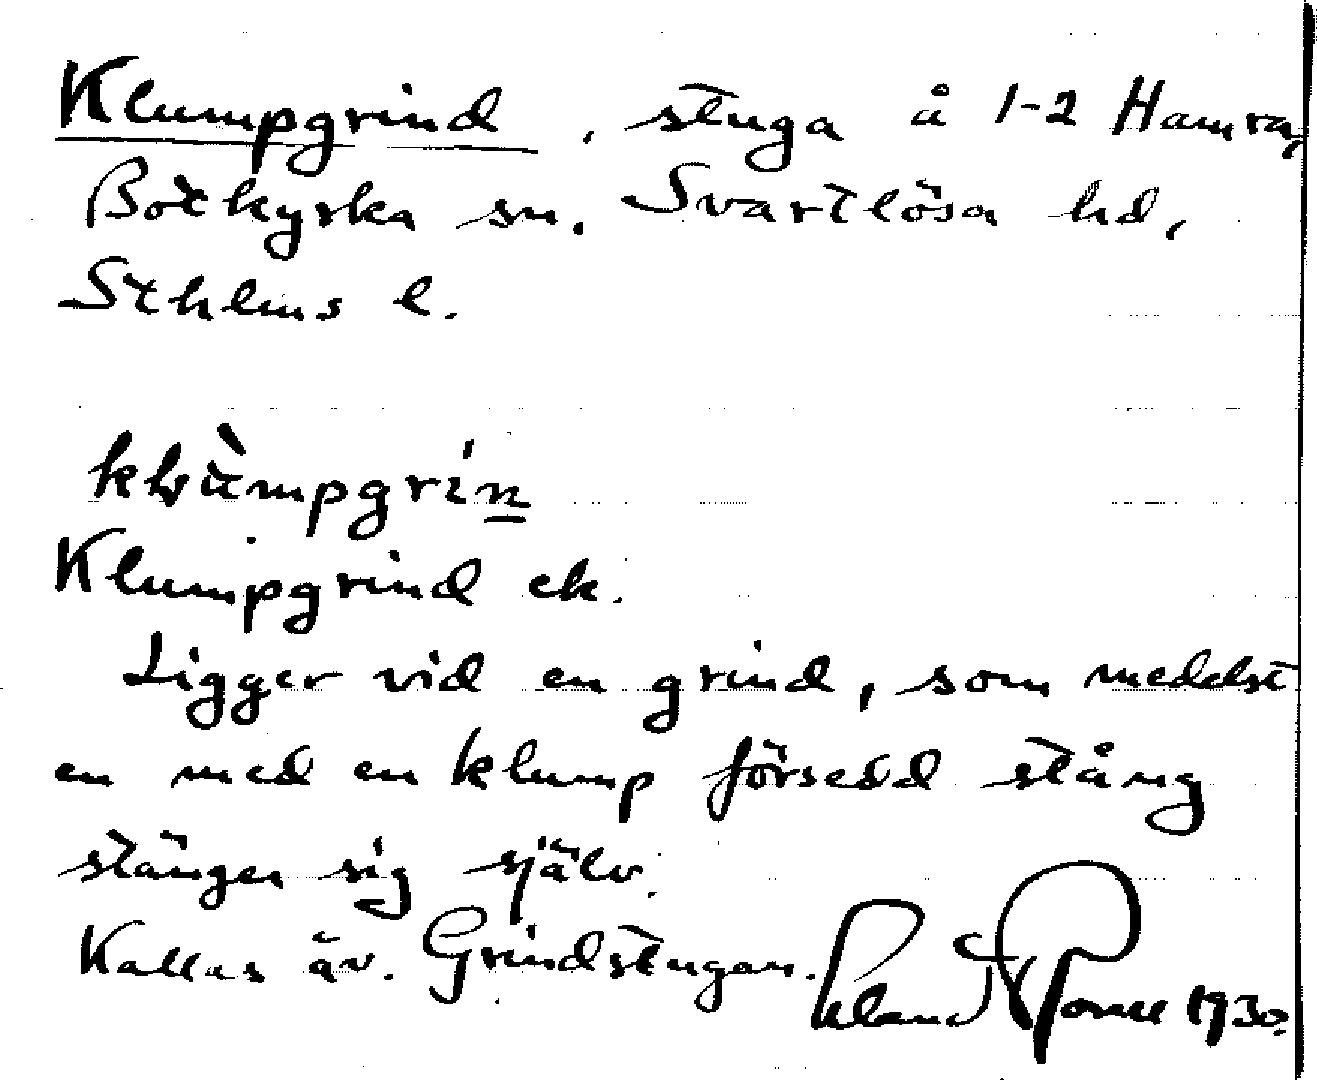 Klumpgrind, stuga å 1-2 Hamra,
Botkyrka sn. Svartlösa hd,
Sthlms l.
klùmpgrín
Klumpgrind ek.
Ligger vid en grind, som medelst
en med en klump försedd stång
stänger sig själv.
Kallas äv. Grindstugan.
1930.